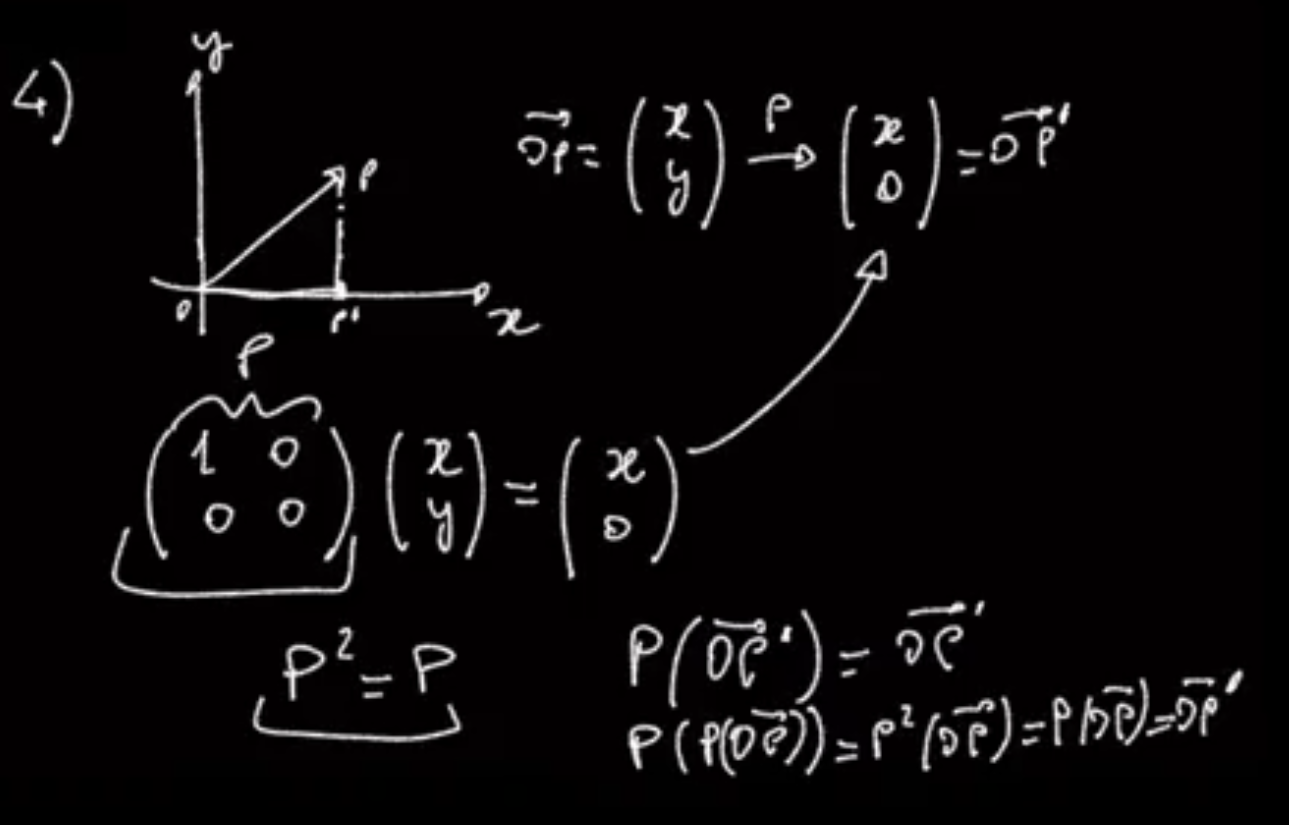 4)
y
P
O
P'
x
\overrightarrow{OP} = \begin{pmatrix} x \\ y \end{pmatrix} \xrightarrow{P} \begin{pmatrix} x \\ 0 \end{pmatrix} = \overrightarrow{OP}'
P
\begin{pmatrix} 1 & 0 \\ 0 & 0 \end{pmatrix} \begin{pmatrix} x \\ y \end{pmatrix} = \begin{pmatrix} x \\ 0 \end{pmatrix}
P^2 = P
P(\overrightarrow{OP}') = \overrightarrow{OP}'
P(P(\overrightarrow{OP})) = P^2(\overrightarrow{OP}) = P(\overrightarrow{OP}) = \overrightarrow{OP}'